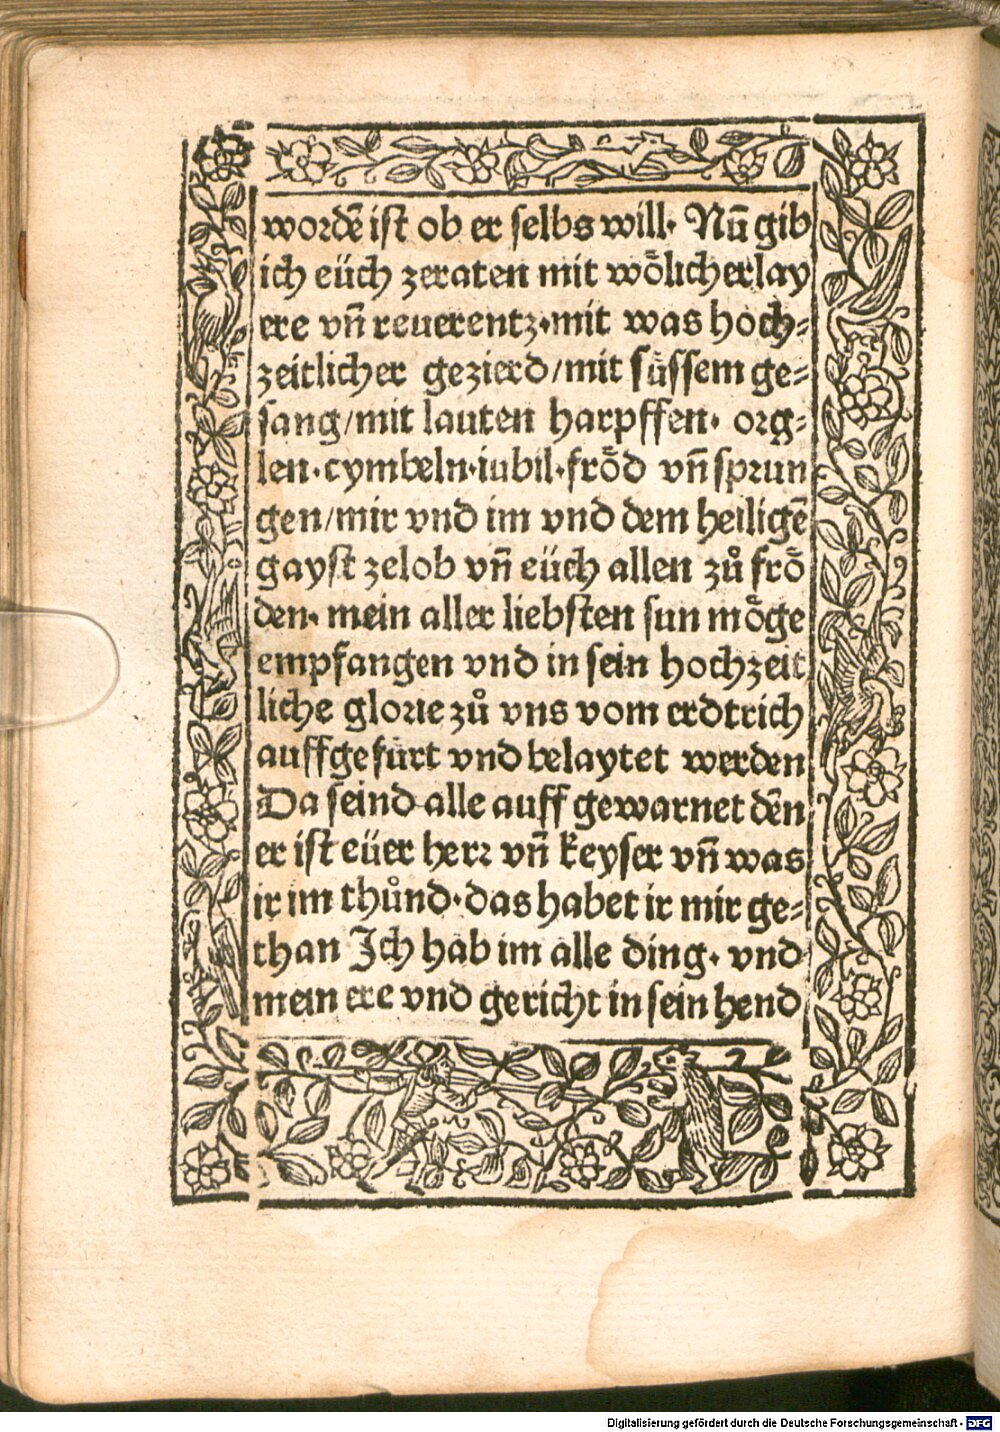 wordē ist ob er selbs will· Nū gib
ich eüch zeraten mit woͤlicherlay
ere vn̄ reuerentz·mit was hoch⸗
zeitlicher gezierd/mit suͤssem ge⸗
sang/mit lauten harpffen· org⸗
len·cymbeln·iubil·froͤd vn̄ sprun
gen/mir vnd im vnd dem heiligē
gayst zelob vn̄ eüch allen zuͦ froͤ
den· mein aller liebsten sun moͤge
empfangen vnd in sein hochzeit
liche glorie zuͦ vns vom erdtrich
auffgefürt vnd belaytet werden
Da seind alle auff gewarnet dēn
er ist eüer herr vn̄ keyser vn̄ was
ir im thuͦnd·das habet ir mir ge⸗
than Ich hab im alle ding· vnd
mein ere vnd gericht in sein hend
Digitalisierung gefördert durch die Deutsche Forschungsgemeinschaft - DFG